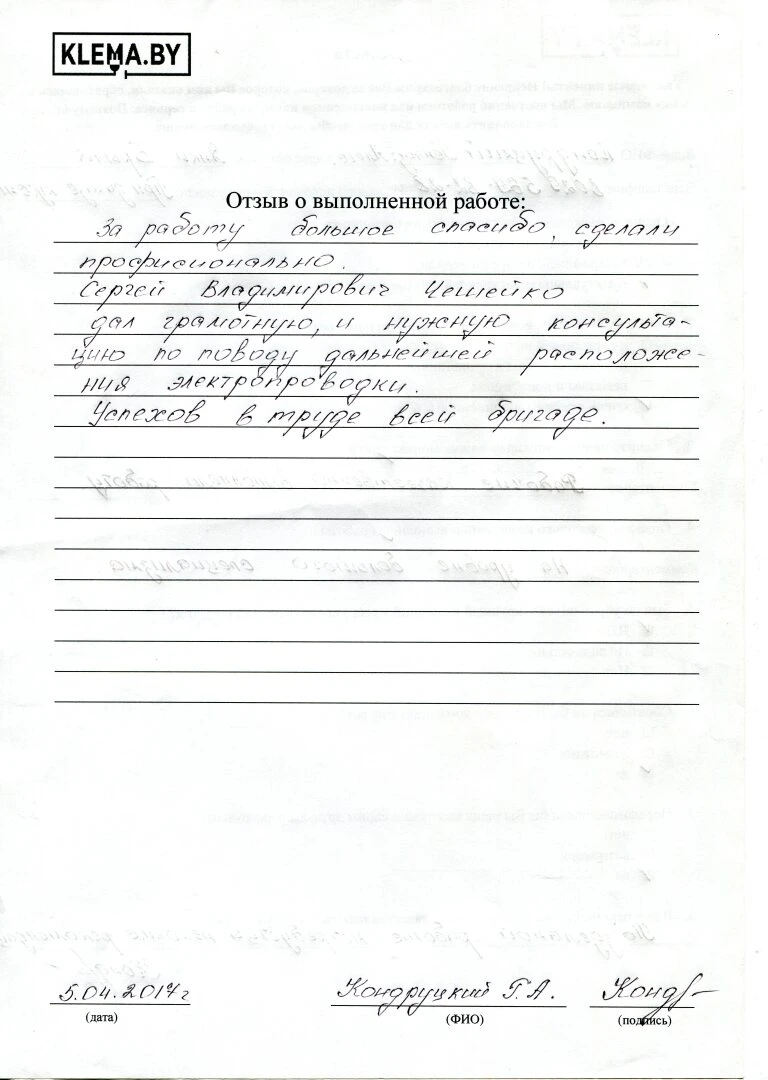 KLEMA.BY
Отзыв о выполненной работе:
За работу большое спасибо, сделали
профисионально.
Сергей Владимирович Чешейко
дал грамотную, и нужную консульта-
цию по поводу дальнейшей расположе-
ния электропроводки.
Успехов в труде всей бригаде.
5.04.2017г Кондруцкий Г.А. Конд
(дата) (ФИО) (подпись)